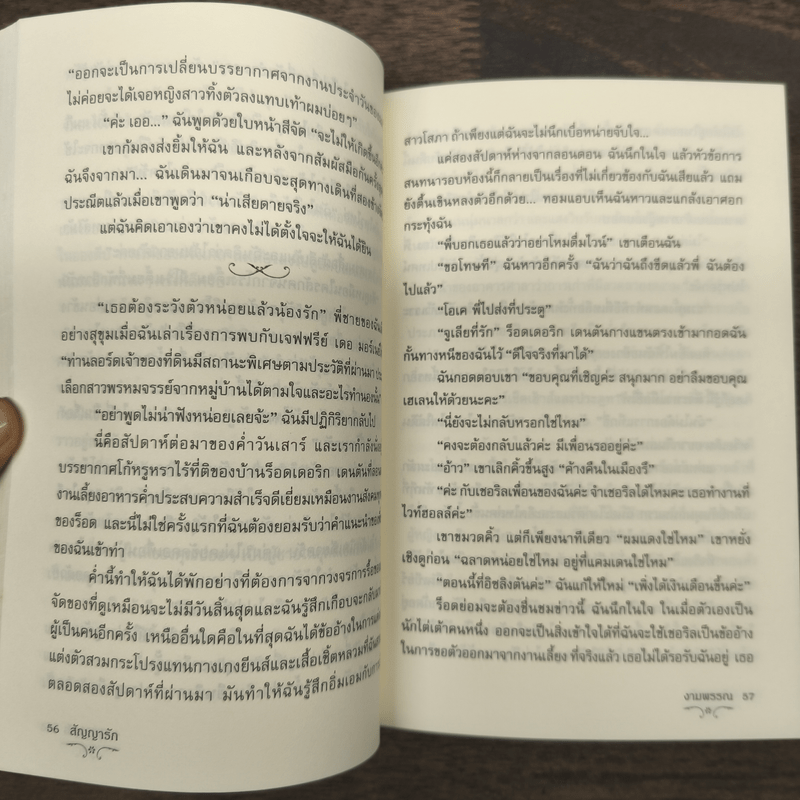 “ออกจะเป็นการเปลี่ยนบรรยากาศจากงานประจำวัน
ไม่ค่อยจะได้เจอหญิงสาวทิ้งตัวลงแทบเท้าผมบ่อยๆ”
“ค่ะ เออ...” ฉันพูดด้วยใบหน้าสีจัด “จะไม่ให้เกิดขึ้น
เขาก้มลงส่งยิ้มให้ฉัน และหลังจากสัมผัสมือกัน
ฉันจึงจากมา... ฉันเดินมาจนเกือบจะสุดทางเดินที่สอง
ประณีตแล้วเมื่อเขาพูดว่า “น่าเสียดายจริง”
แต่ฉันคิดเอาเองว่าเขาคงไม่ได้ตั้งใจจะให้ฉันได้ยิน
“เธอต้องระวังตัวหน่อยแล้วน้องรัก” พี่ชายของฉัน
อย่างสุขุมเมื่อฉันเล่าเรื่องการพบกับเจฟฟรีย์ เดอ
“ท่านลอร์ดเจ้าของที่ดินมีสถานะพิเศษตามประวัติที่ผ่านมา
เลือกสาวพรหมจรรย์จากหมู่บ้านได้ตามใจและอะไรทำนอง
“อย่าพูดไม่น่าฟังหน่อยเลยจ้ะ” ฉันมีปฏิกิริยากลับไป
นี่คือสัปดาห์ต่อมาของค่ำวันเสาร์ และเรากำลัง
บรรยากาศโก้หรูหราไร้ที่ติของบ้านร็อดเดอริก เดนตัน
งานเลี้ยงอาหารค่ำประสบความสำเร็จดีเยี่ยมเหมือนงาน
ของร็อด และนี่ไม่ใช่ครั้งแรกที่ฉันต้องยอมรับว่าคำแนะนำ
ของฉันเข้าท่า
ค่ำนี้ทำให้ฉันได้พักอย่างที่ต้องการจากวงจรการรื้อ
จัดของที่ดูเหมือนจะไม่มีวันสิ้นสุดและฉันรู้สึกเกือบจะ
ผู้เป็นคนอีกครั้ง เหนืออื่นใดคือในที่สุดฉันได้ข้ออ้างในการ
แต่งตัวสวมกระโปรงแทนกางเกงยีนส์และเสื้อเชิ้ตหลวมที่
ตลอดสองสัปดาห์ที่ผ่านมา มันทำให้ฉันรู้สึกอิ่มเอมกับ
56 สัญญารัก
สาวโสภา ถ้าเพียงแต่ฉันจะไม่นึกเบื่อหน่ายจับใจ...
แค่สองสัปดาห์ห่างจากลอนดอน ฉันนึกในใจ แล้วหัวข้อการ
สนทนารอบห้องนี้ก็กลายเป็นเรื่องที่ไม่เกี่ยวข้องกับฉันเสียแล้ว แถม
ยังตื่นเขินหลงตัวอีกด้วย... ทอมแอบเห็นฉันหาวและแกล้งเอาศอก
กระทุ้งฉัน
“พี่บอกเธอแล้วว่าอย่าโหมดื่มไวน์” เขาเตือนฉัน
“ขอโทษที” ฉันหาวอีกครั้ง “ฉันว่าฉันถึงขีดแล้วพี่ ฉันต้อง
ไปแล้ว”
“โอเค พี่ไปส่งที่ประตู”
“จูเลียที่รัก” ร็อดเดอริก เดนตันกางแขนตรงเข้ามากอดฉัน
กั้นทางหนีของฉันไว้ “ดีใจจริงที่มาได้”
ฉันกอดตอบเขา “ขอบคุณที่เชิญค่ะ สนุกมาก อย่าลืมขอบคุณ
เฮเลนให้ด้วยนะคะ”
“นี่ยังจะไม่กลับหรอกใช่ไหม”
“คงจะต้องกลับแล้วค่ะ มีเพื่อนรออยู่ค่ะ”
“อ้าว” เขาเลิกคิ้วขึ้นสูง “ค้างคืนในเมืองรึ”
“ค่ะ กับเชอริลเพื่อนของฉันค่ะ จำเชอริลได้ไหมคะ เธอทำงานที่
ไวท์ฮอลล์ค่ะ”
เขาขมวดคิ้ว แต่ก็เพียงนาทีเดียว “ผมแดงใช่ไหม” เขาหยั่ง
เชิงดูก่อน “ฉลาดหน่อยใช่ไหม อยู่ที่แคมเดนใช่ไหม”
“ตอนนี้ที่อิซลิงตันค่ะ” ฉันแก้ให้ใหม่ “เพิ่งได้เงินเดือนขึ้นค่ะ”
ร็อดย่อมจะต้องชื่นชมข่าวนี้ ฉันนึกในใจ ในเมื่อตัวเองเป็น
นักไต่เต้าคนหนึ่ง ออกจะเป็นสิ่งเข้าใจได้ที่ฉันจะใช้เชอริลเป็นข้ออ้าง
ในการขอตัวออกมาจากงานเลี้ยง ที่จริงแล้ว เธอไม่ได้รอรับฉันอยู่ เธอ
งามพรรณ 57